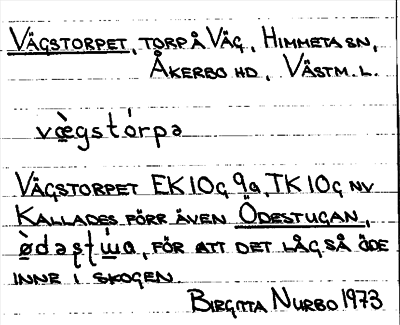 VÄGSTORPET, TORP Å VÄG, HIMMETA SN,
ÅKERBO HD, VÄSTM. L.
VÄGSTORPET EK 10G 9a, TK 10G NV
KALLADES FÖRR ÄVEN ÖDESTUGAN,
FÖR ATT DET LÅG SÅ ÖDE
INNE I SKOGEN.
BIRGITTA NURBO 1973